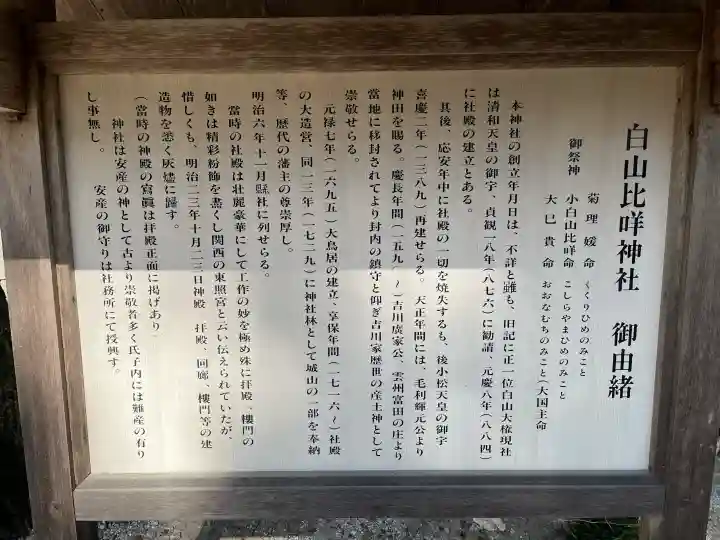 白山比咩神社　御由緒
菊理媛命　くくりひめのみこと
御祭神　小白山比咩命　こしらやまひめのみこと
大巳貴命　おおなむちのみこと(大国主命
本神社の創立年月日は、不詳と雖も、旧記に正一位白山大権現社
は清和天皇の御宇、貞観一八年(八七六)に勧請、元慶八年(八八四)
に社殿の建立とある。
其後、応安年中に社殿の一切を焼失するも、後小松天皇の御宇
嘉慶二年(一三八九)再建せらる。天正年間には、毛利輝元公より
神田を賜る。慶長年間(一五九　～)吉川廣家公、雲州富田の庄より
當地に移封されてより封内の鎮守と仰ぎ吉川家歴世の産土神として
崇敬せらる。
元禄七年(一六九五)大鳥居の建立、享保年間(一七一六～)社殿
の大造営、同一三年(一七二九)に神社林として城山の一部を奉納
等、歴代の藩主の尊崇厚し。
明治六年十一月縣社に列せらる。
當時の社殿は壮麗豪華にして工作の妙を極め殊に拝殿、樓門の
如きは精彩粉飾を盡くし関西の東照宮と云い伝えられていたが、
惜しくも、明治二三年十月二三日神殿　拝殿、回廊、樓門等の建
造物を悉く灰燼に歸す。
(當時の神殿の寫眞は拝殿正面に掲げあり
神社は安産の神として古より崇敬者多く氏子内には難産の有り
し事無し。　安産の御守りは社務所にて授興す。